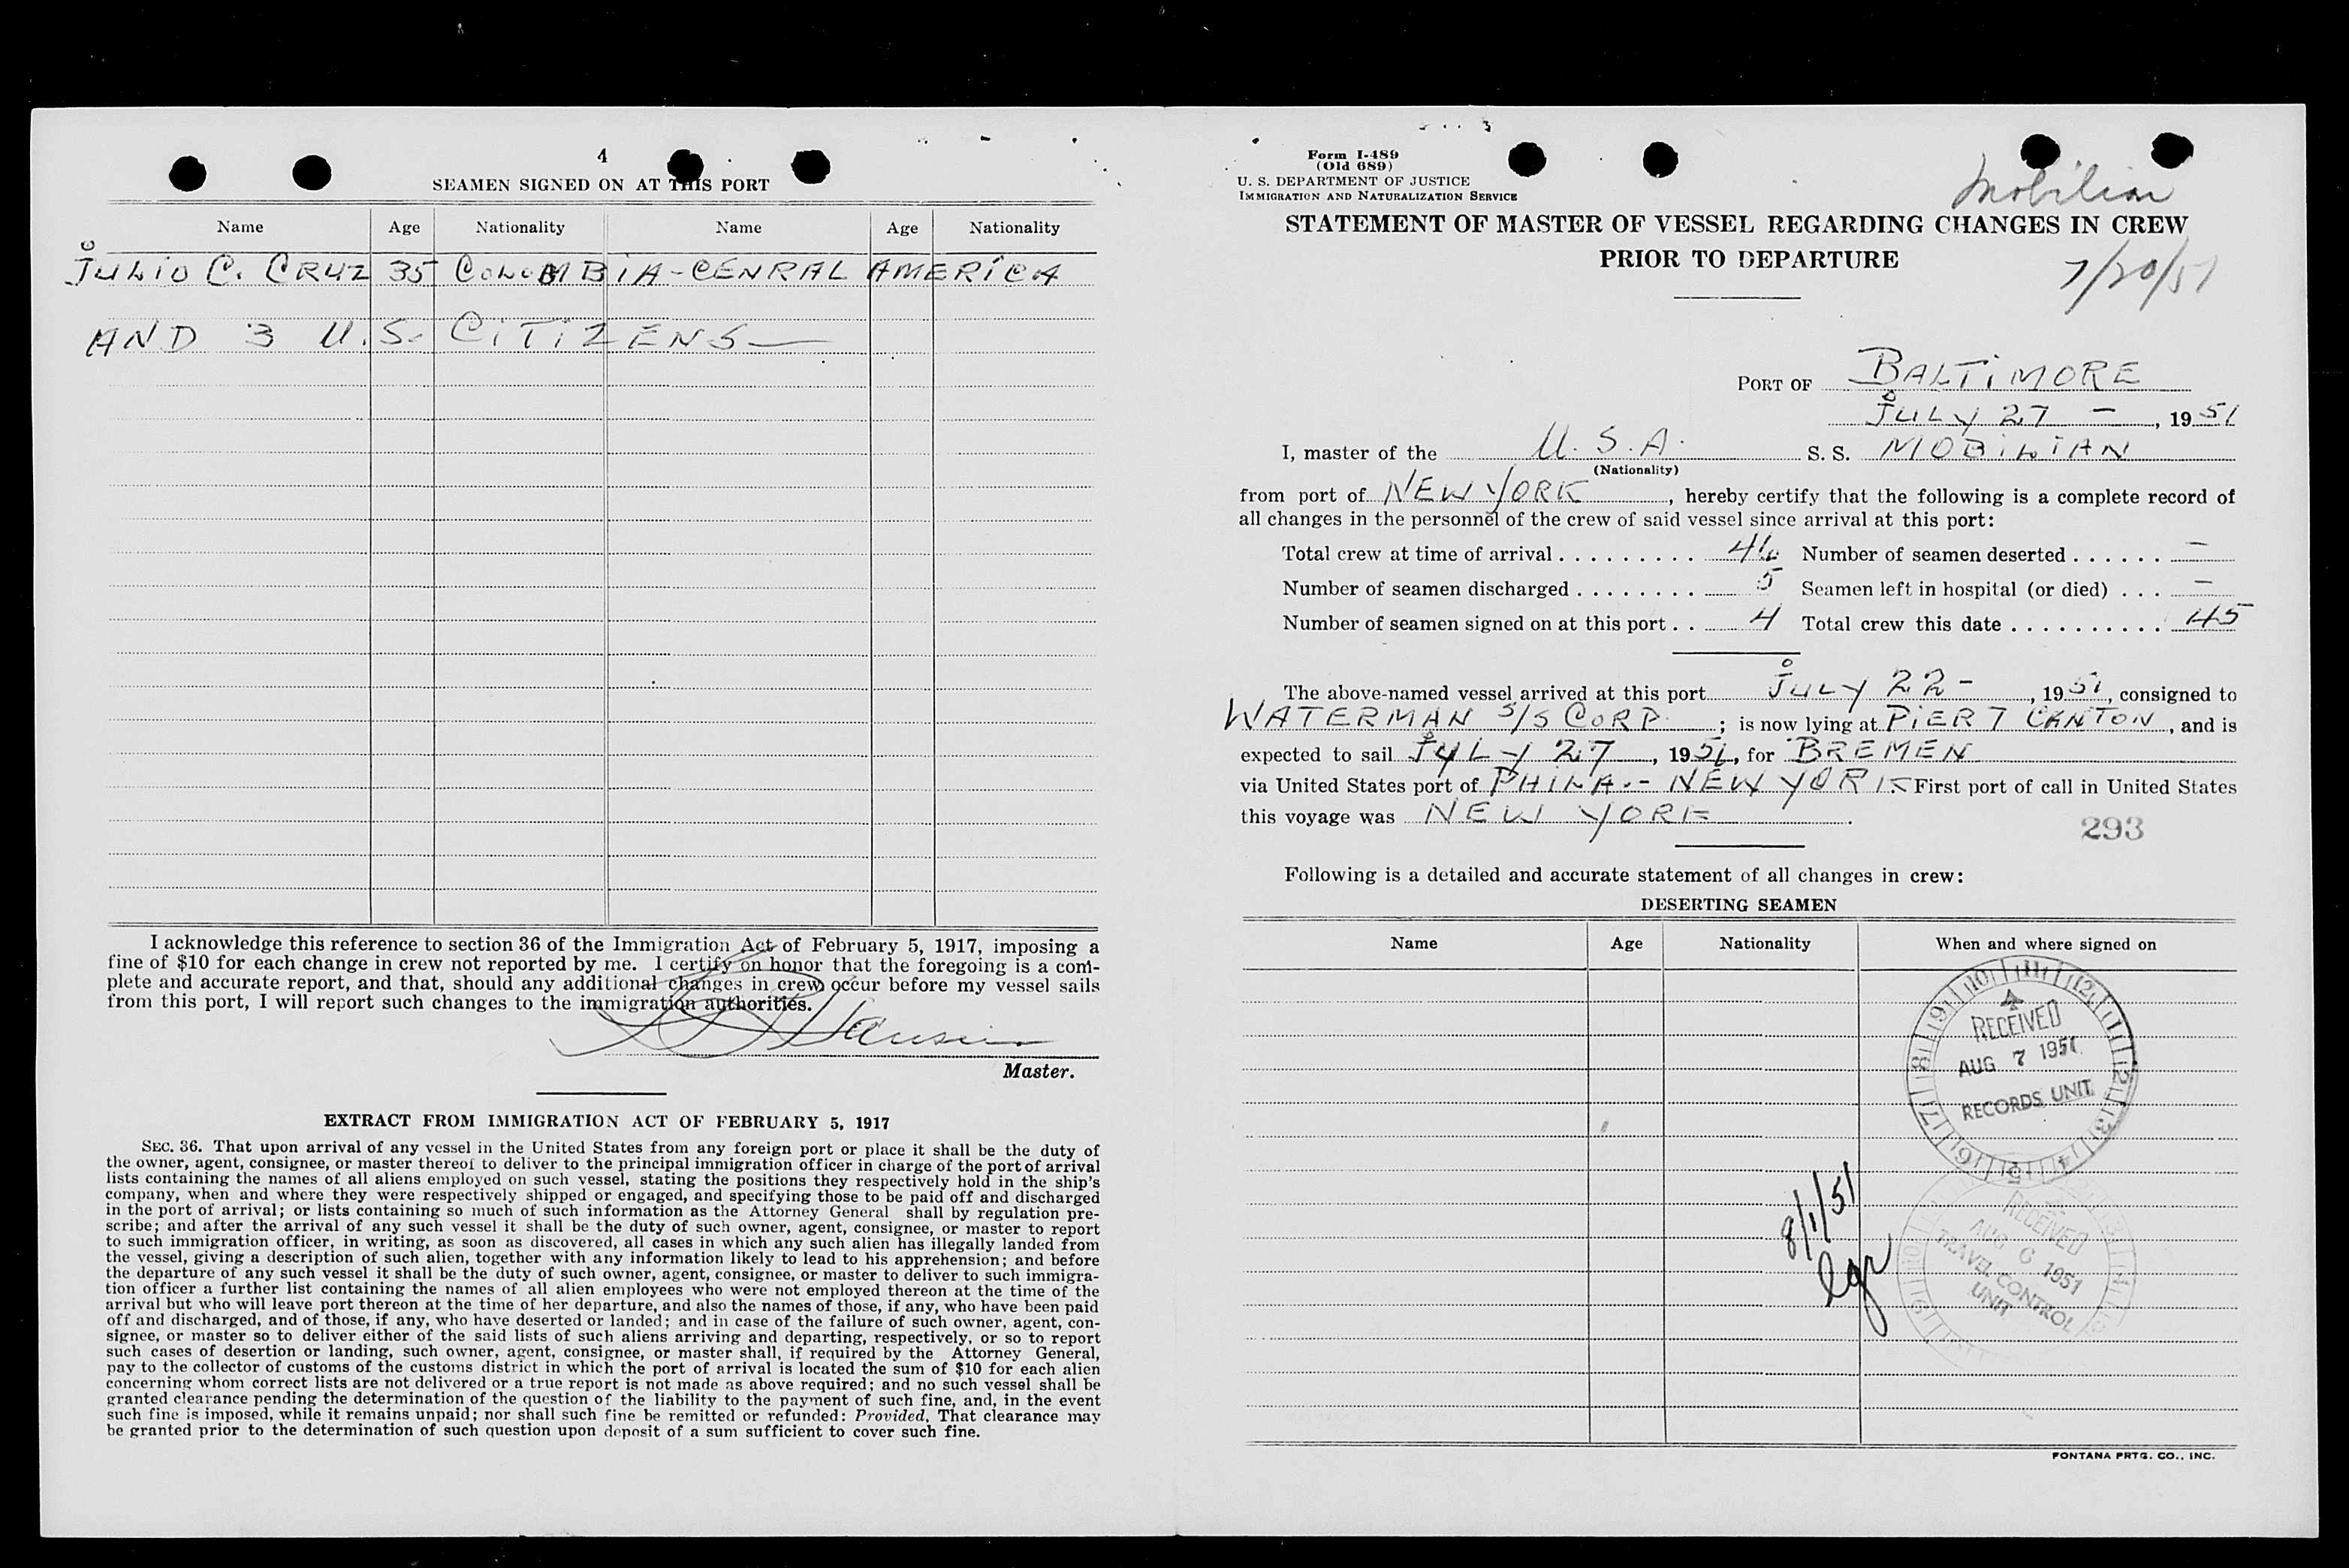 4
SEAMEN SIGNED ON AT THIS PORT
Name Age Nationality Name Age Nationality
JULIO C. CRUZ 35 COLOMBIA-CENRAL AMERICA
AND 3 U.S. CITIZENS
I acknowledge this reference to section 36 of the Immigration Act of February 5, 1917, imposing a
fine of $10 for each change in crew not reported by me. I certify on honor that the foregoing is a com-
plete and accurate report, and that, should any additional changes in crew occur before my vessel sails
from this port, I will report such changes to the immigration authorities.
Master.
EXTRACT FROM IMMIGRATION ACT OF FEBRUARY 5, 1917
SEC. 36. That upon arrival of any vessel in the United States from any foreign port or place it shall be the duty of
the owner, agent, consignee, or master thereof to deliver to the principal immigration officer in charge of the port of arrival
lists containing the names of all aliens employed on such vessel, stating the positions they respectively hold in the ship's
company, when and where they were respectively shipped or engaged, and specifying those to be paid off and discharged
in the port of arrival; or lists containing so much of such information as the Attorney General shall by regulation pre-
scribe; and after the arrival of any such vessel it shall be the duty of such owner, agent, consignee, or master to report
to such immigration officer, in writing, as soon as discovered, all cases in which any such alien has illegally landed from
the vessel, giving a description of such alien, together with any information likely to lead to his apprehension; and before
the departure of any such vessel it shall be the duty of such owner, agent, consignee, or master to deliver to such immigra-
tion officer a further list containing the names of all alien employees who were not employed thereon at the time of the
arrival but who will leave port thereon at the time of her departure, and also the names of those, if any, who have been paid
off and discharged, and of those, if any, who have deserted or landed; and in case of the failure of such owner, agent, con-
signee, or master so to deliver either of the said lists of such aliens arriving and departing, respectively, or so to report
such cases of desertion or landing, such owner, agent, consignee, or master shall, if required by the Attorney General,
pay to the collector of customs of the customs district in which the port of arrival is located the sum of $10 for each alien
concerning whom correct lists are not delivered or a true report is not made as above required; and no such vessel shall be
granted clearance pending the determination of the question of the liability to the payment of such fine, and, in the event
such fine is imposed, while it remains unpaid; nor shall such fine be remitted or refunded: Provided, That clearance may
be granted prior to the determination of such question upon deposit of a sum sufficient to cover such fine.
Form I-489
(Old 689)
U. S. DEPARTMENT OF JUSTICE
IMMIGRATION AND NATURALIZATION SERVICE
Mobilian
STATEMENT OF MASTER OF VESSEL REGARDING CHANGES IN CREW
PRIOR TO DEPARTURE
7/20/51
PORT OF BALTIMORE
JULY 27 - , 1951
I, master of the U.S.A. S. S. MOBILIAN
(Nationality)
from port of NEW YORK, hereby certify that the following is a complete record of
all changes in the personnel of the crew of said vessel since arrival at this port:
Total crew at time of arrival 46 Number of seamen deserted -
Number of seamen discharged 5 Seamen left in hospital (or died) -
Number of seamen signed on at this port 4 Total crew this date 45
The above-named vessel arrived at this port JULY 22 - , 1951, consigned to
WATERMAN S/S CORP. ; is now lying at PIER 7 CANTON, and is
expected to sail JULY 27, 1951, for BREMEN
via United States port of PHILA. - NEW YORK First port of call in United States
this voyage was NEW YORK.
293
Following is a detailed and accurate statement of all changes in crew:
DESERTING SEAMEN
Name Age Nationality When and where signed on
RECEIVED
AUG 7 1951
RECORDS UNIT
8/1/51
RECEIVED
AUG 6 1951
TRAVEL CONTROL
UNIT
FONTANA PRTG. CO., INC.